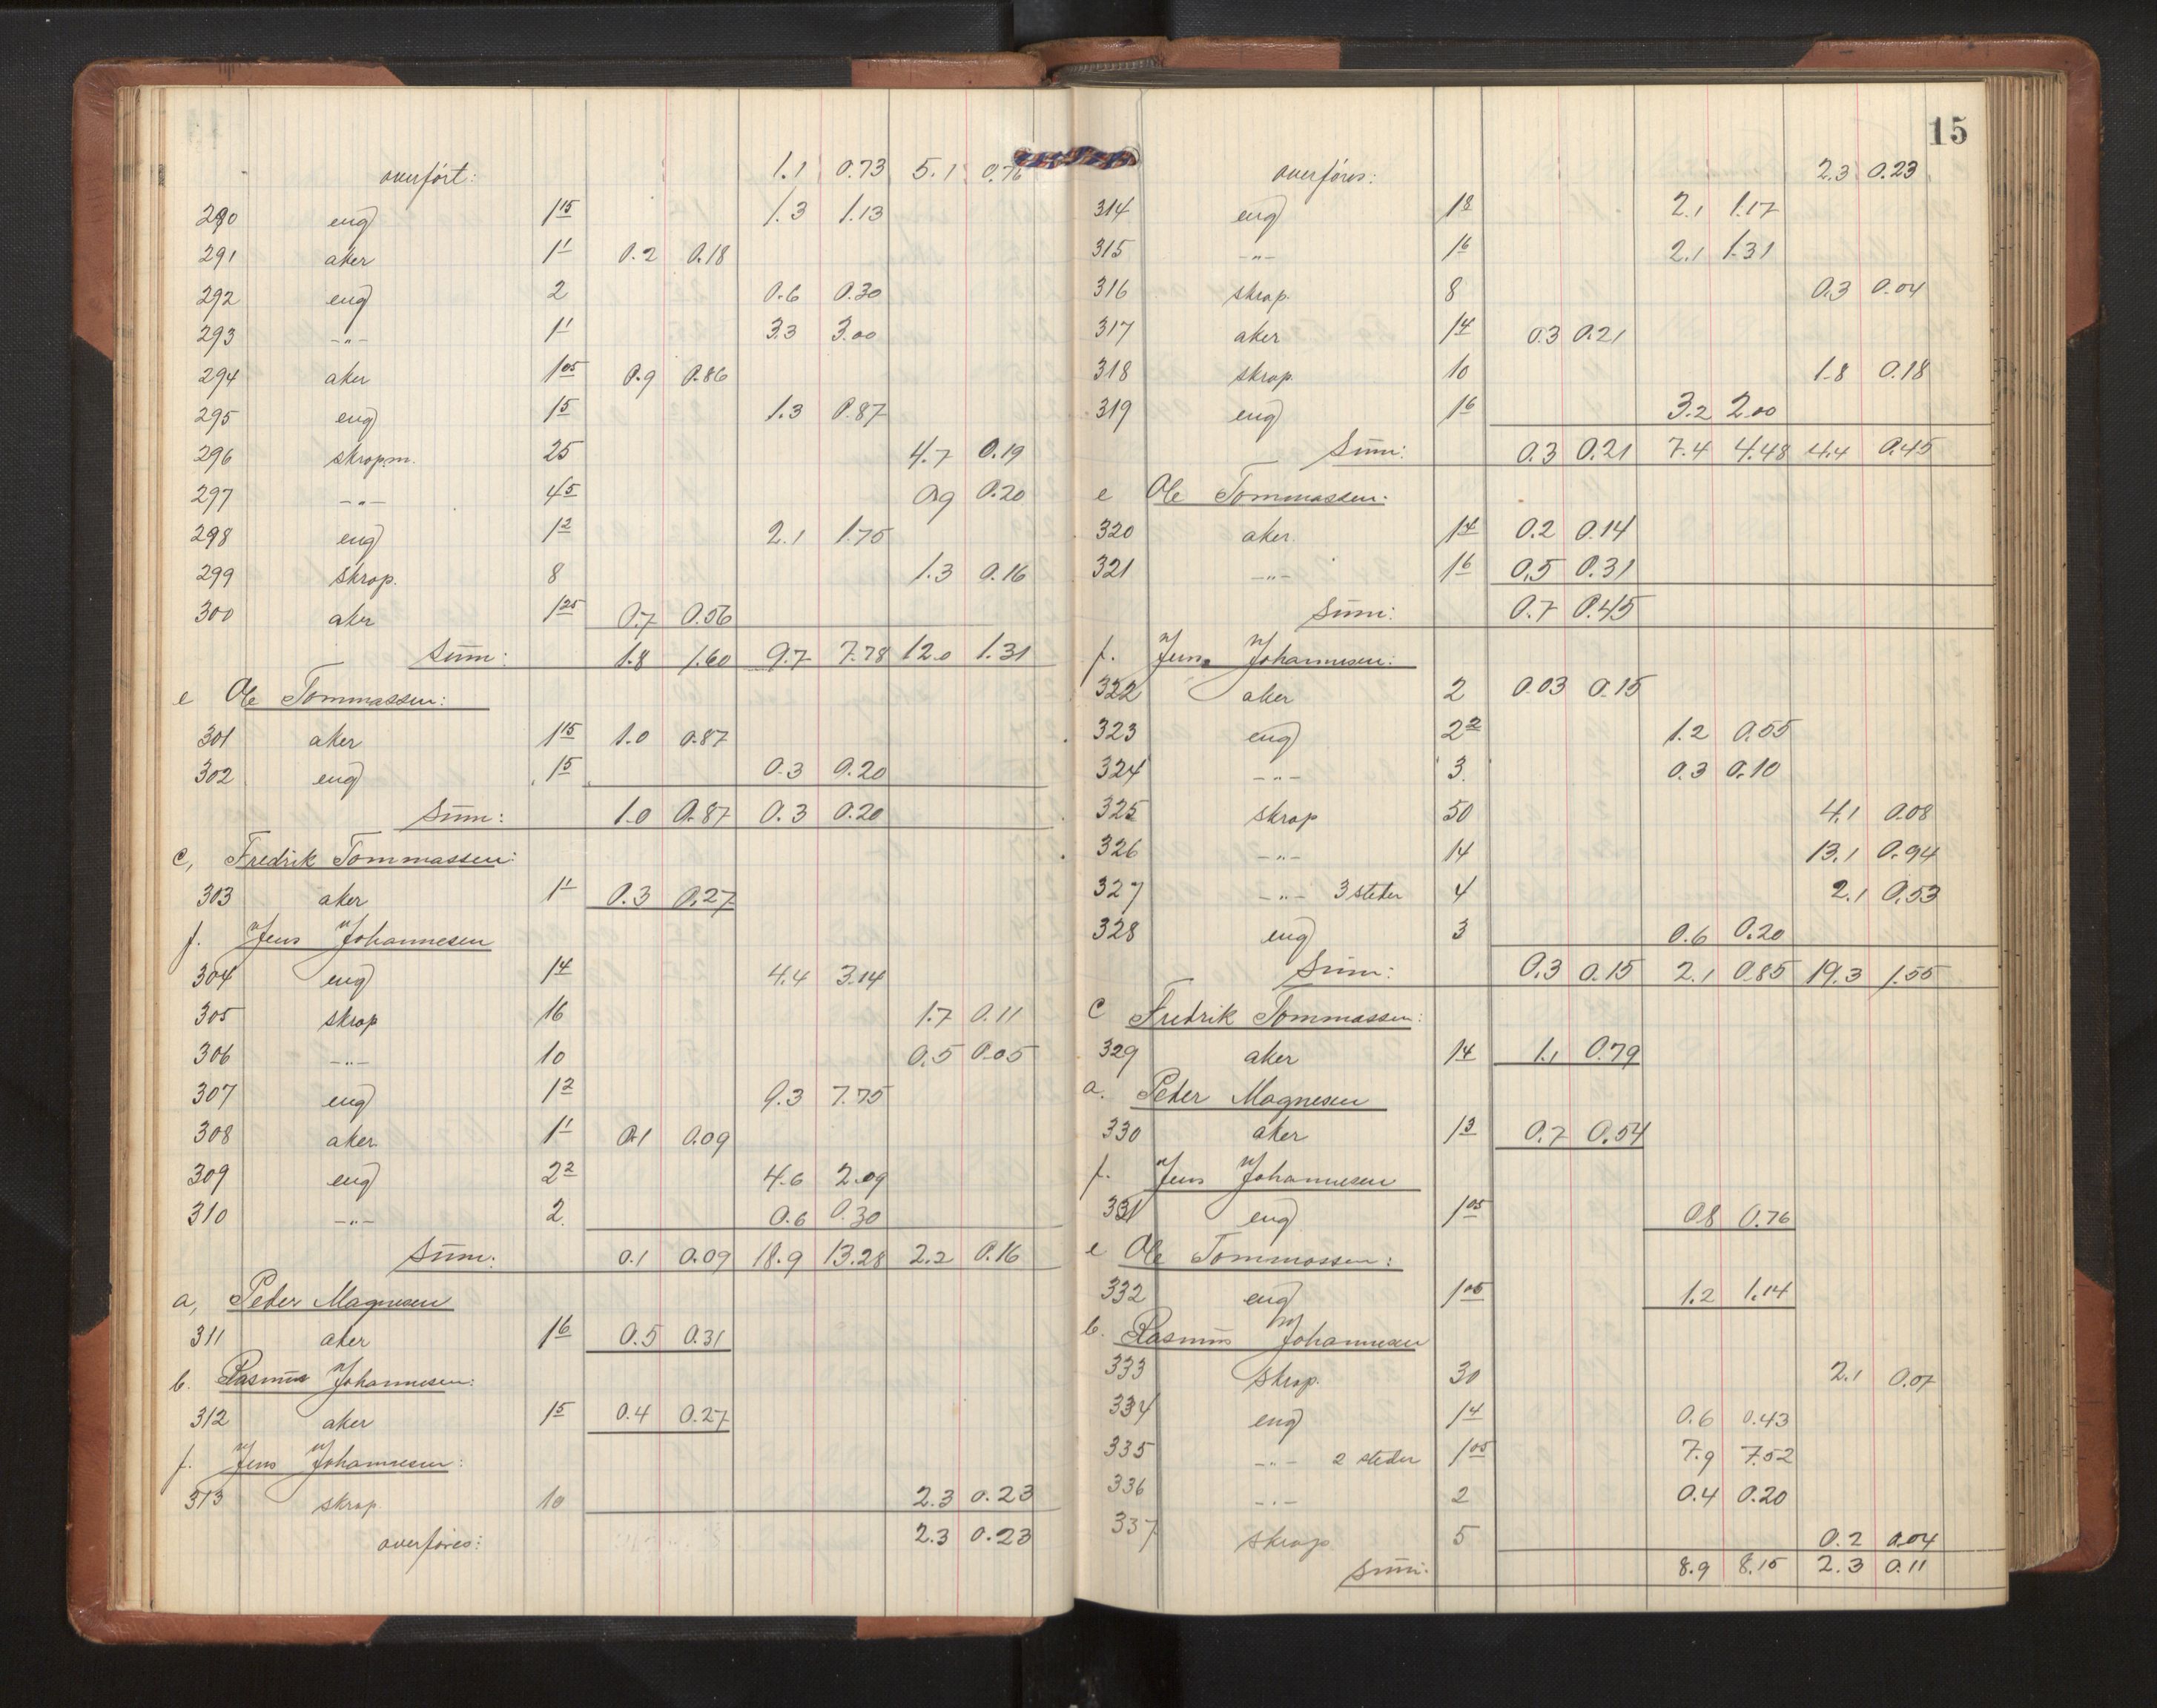 overført: 1.1 0.73 5.1 0.76
290 eng 1 15 1.3 1.13
291 aker 1 1 0.2 0.18
292 eng 2 0.6 0.30
293 -"- 1 1 3.3 3.00
294 aker 1 05 0.9 0.86
295 eng 1 5 1.3 0.87
296 skrapm. 25 4.7 0.19
297 -"- 45 0.9 0.20
298 eng 1 2 2.1 1.75
299 skrap. 8 1.3 0.16
300 aker 1 25 0.7 0.56
Sum: 1.8 1.60 9.7 7.78 12.0 1.31
e Ole Tommassen:
301 aker 1 15 1.0 0.87
302 eng 1 5 0.3 0.20
Sum: 1.0 0.87 0.3 0.20
c, Fredrik Tommassen:
303 aker 1 1 0.3 0.27
f. Jens Johannesen
304 eng 1 4 4.4 3.14
305 skrap 16 1.7 0.11
306 -"- 10 0.5 0.05
307 eng 1 2 9.3 7.75
308 aker 1 1 0.1 0.09
309 eng 2 2 4.6 2.09
310 -"- 2 0.6 0.30
Sum: 0.1 0.09 18.9 13.28 2.2 0.16
a, Peder Magnesen
311 aker 1 6 0.5 0.31
b. Rasmus Johannesen:
312 aker 1 5 0.4 0.27
f. Jens Johannesen:
313 skrap. 10 2.3 0.23
overføres: 2.3 0.23
15
overføres: 2.3 0.23
314 eng 1 8 2.1 1.17
315 -"- 1 6 2.1 1.31
316 skrap. 8 0.3 0.04
317 aker 1 4 0.3 0.21
318 skrap. 10 1.8 0.18
319 eng 1 6 3.2 2.00
Sum: 0.3 0.21 7.4 4.48 4.4 0.45
e Ole Tommassen:
320 aker 1 4 0.2 0.14
321 -"- 1 6 0.5 0.31
Sum: 0.7 0.45
f. Jens Johannesen:
322 aker 2 0.03 0.15
323 eng 2 2 1.2 0.55
324 -"- 3. 0.3 0.10
325 skrap 50 4.1 0.08
326 -"- 14 13.1 0.94
327 -"- 3 steder 4 2.1 0.53
328 eng 3 0.6 0.20
Sum: 0.3 0.15 2.1 0.85 19.3 1.55
c Fredrik Tommassen:
329 aker 1 4 1.1 0.79
a. Peder Magnesen
330 aker 1 3 0.7 0.54
f. Jens Johannesen
331 eng 1 05 0.8 0.76
e Ole Tommassen:
332 eng 1 05 1.2 1.14
b. Rasmus Johannesen
333 skrap. 30 2.1 0.07
334 eng 1 4 0.6 0.43
335 -"- 2 steder 1 05 7.9 7.52
336 -"- 2 0.4 0.20
337 skrap 5 0.2 0.04
Sum: 8.9 8.15 2.3 0.11